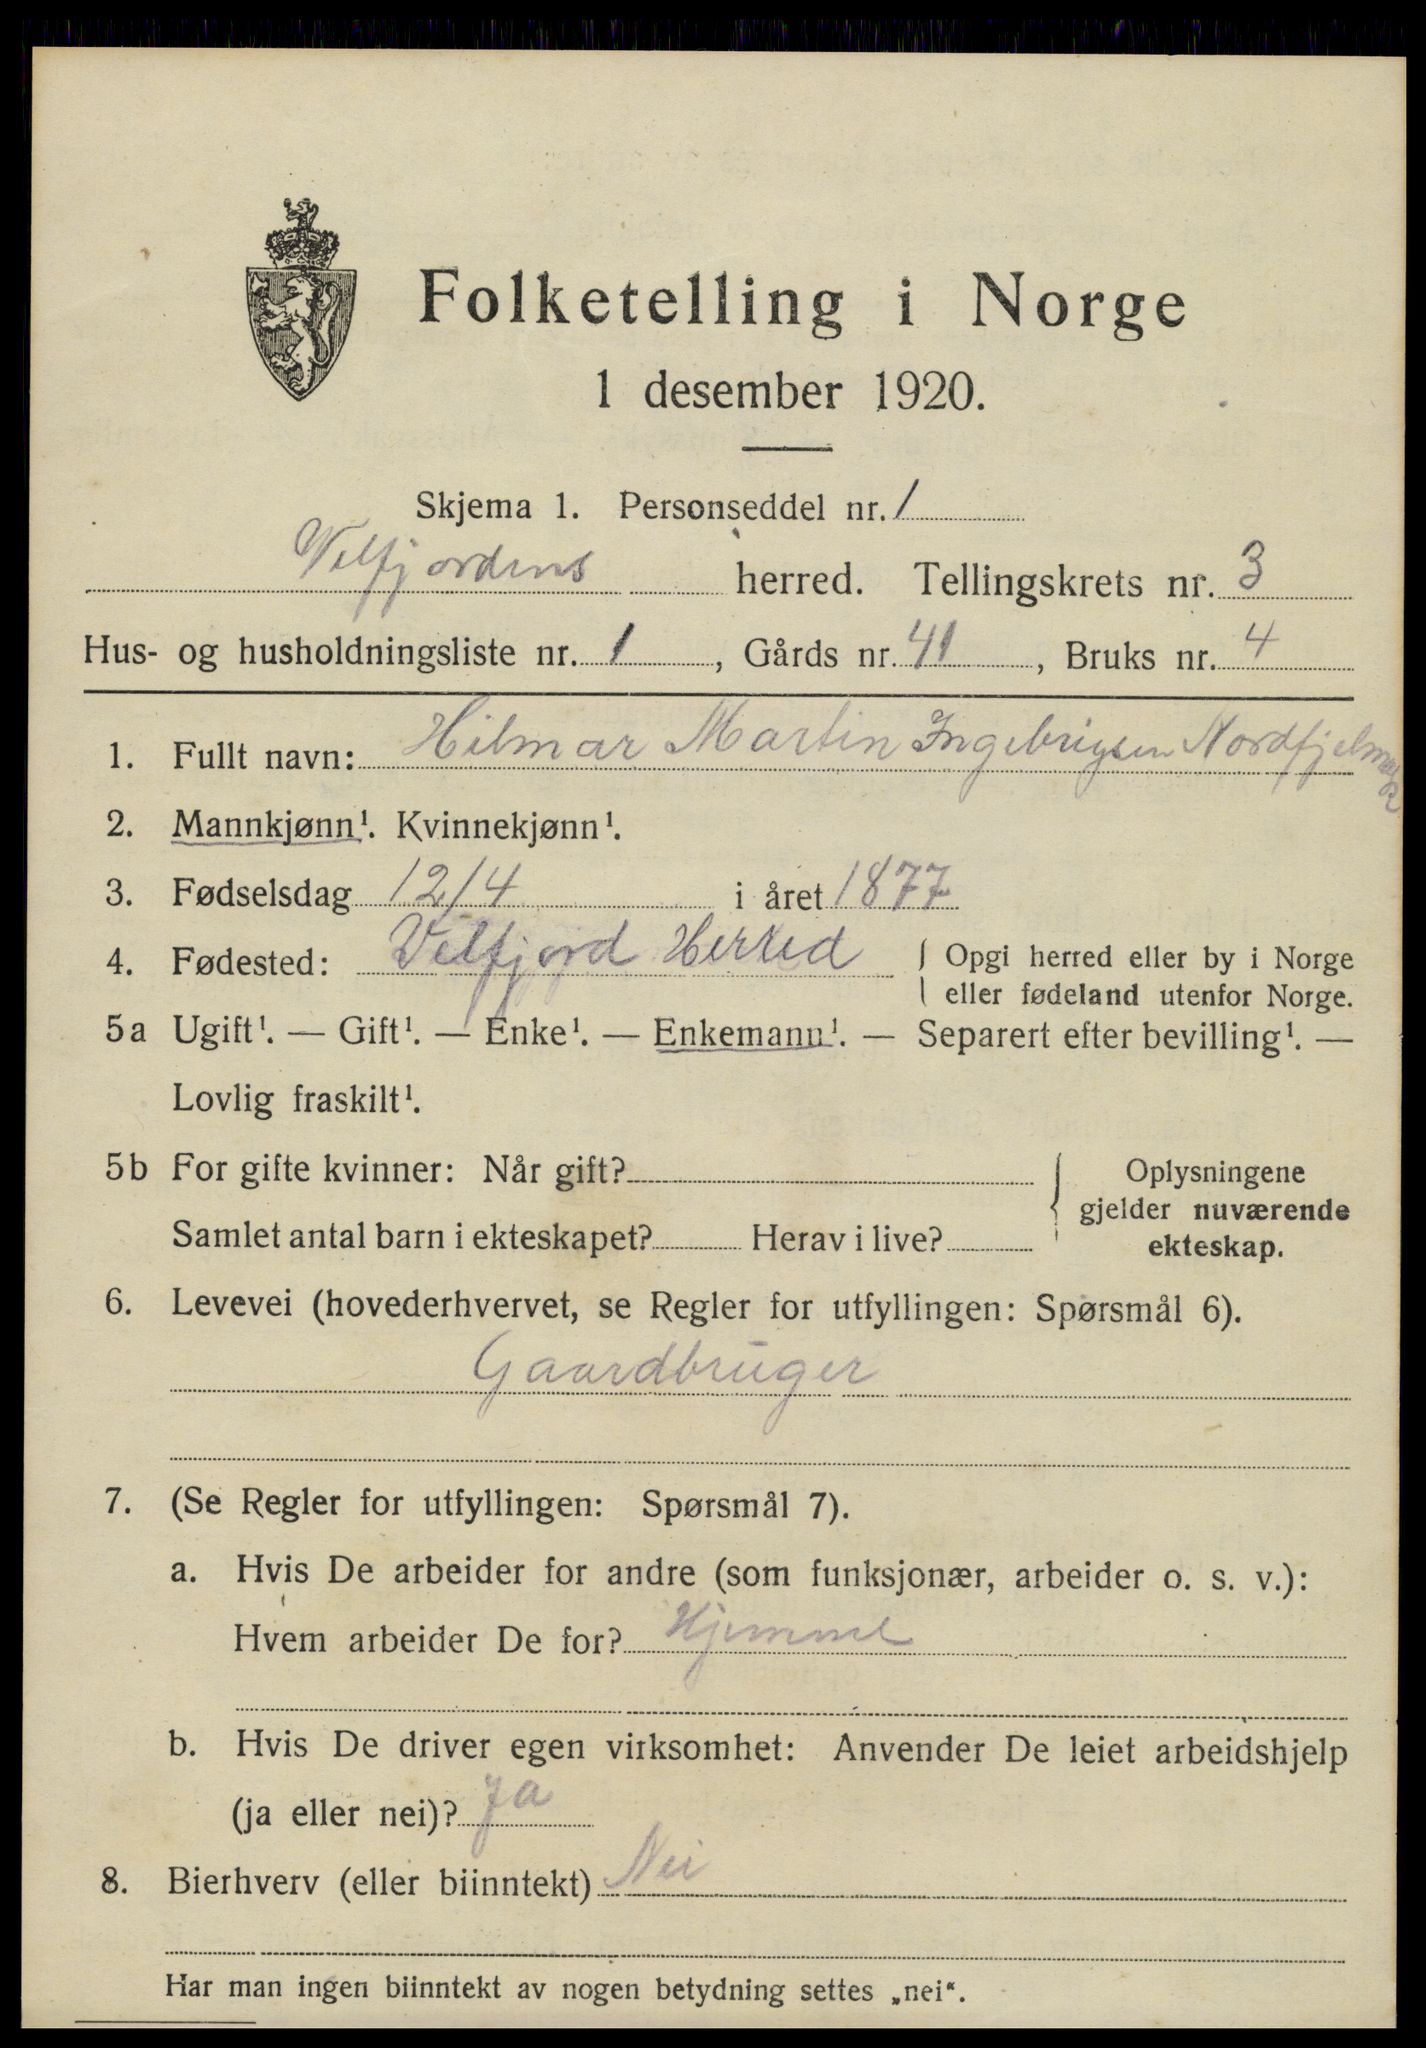 Folketelling i Norge
1 desember 1920.
Skjema 1. Personseddel nr. 1
Velfjordens herred. Tellingskrets nr. 3
Hus- og husholdningsliste nr. 1, Gårds nr. 41, Bruks nr. 4
1. Fullt navn: Hilmar Martin Ingebrigsen Nordfjelmark
2. Mannkjønn¹. Kvinnekjønn¹.
3. Fødselsdag 12/4 i året 1877
4. Fødested: Velfjord Herred { Opgi herred eller by i Norge
eller fødeland utenfor Norge.
5a Ugift¹. — Gift¹. — Enke¹. — Enkemann¹. — Separert efter bevilling¹. —
Lovlig fraskilt¹.
5b For gifte kvinner: Når gift?
Samlet antal barn i ekteskapet? Herav i live?
Oplysningene
gjelder nuværende
ekteskap.
6. Levevei (hovederhvervet, se Regler for utfyllingen: Spørsmål 6).
Gaardbruger
7. (Se Regler for utfyllingen: Spørsmål 7).
a. Hvis De arbeider for andre (som funksjonær, arbeider o. s. v.):
Hvem arbeider De for? Hjemme
b. Hvis De driver egen virksomhet: Anvender De leiet arbeidshjelp
(ja eller nei)? Ja
8. Bierhverv (eller biinntekt) Nei
Har man ingen biinntekt av nogen betydning settes „nei“.